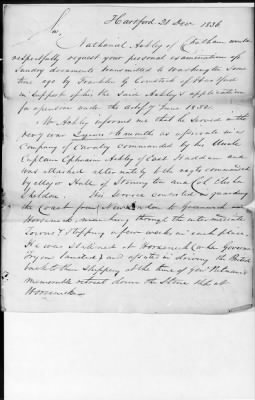 Hartford 21 Dec. 1836
Sir,
Nathaniel Ackley of Chatham would
respectfully request your personal examination of
Sundry documents transmitted to Washington some
time ago by Franklin G Comstock of Hartford
in support of his the said Ackley's application
for a pension under the act of 7 June 1832.
Mr Ackley informs me that he served in the
revy war and as a private in a
Company of Cavalry commanded by his Uncle
Captain Ephraim Ackley of East Haddam and
was attached alternately to the regts commanded
by Major Hall of Stonington and Col Elisha
Sheldon. His service consisted in guarding
the Coast from New London to Greenwich or
Horseneck marching through the intermediate
Towns & stopping a few weeks in each place.
He was stationed at Horseneck when Governor
Tryon landed and assisted in driving the British
back to their Shipping at the time of Genl Putnam's
memorable retreat down the Stone steps at
Horseneck